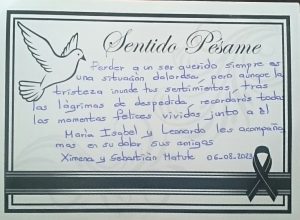 Sentido Pésame
Perder a un ser querido siempre es
una situación dolorosa, pero aunque la
tristeza invade tus sentimientos, tras
las lágrimas de despedida, recordarás todos
los momentos felices vividos junto a él
Maria Isabel y Leonardo les acompaña
mos en su dolor sus amigos
Ximena y Sebastián Matute 06-08-2023